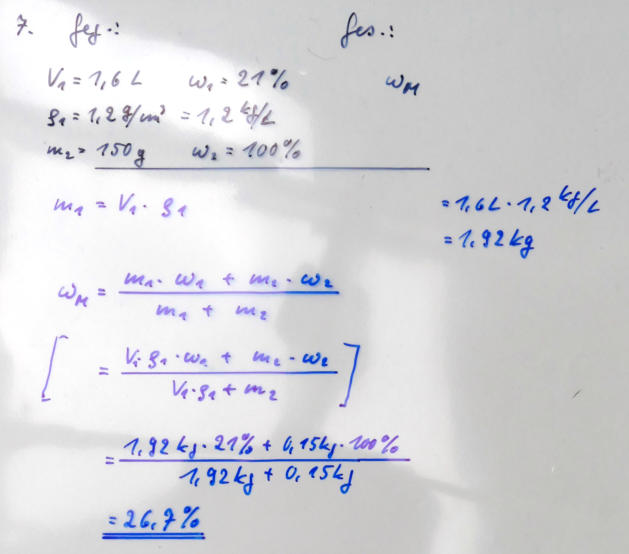 7. geg.: ges.:
V₁ = 1,6 L ω₁ = 21% ω_M
ρ₁ = 1,2 g/m³ = 1,2 kg/L
m₂ = 150 g ω₂ = 100%
m₁ = V₁ · ρ₁ = 1,6 L · 1,2 kg/L
= 1,92 kg
ω_M = (m₁ · ω₁ + m₂ · ω₂) / (m₁ + m₂)
[ = (V₁ · ρ₁ · ω₁ + m₂ · ω₂) / (V₁ · ρ₁ + m₂) ]
= (1,92 kg · 21% + 0,15 kg · 100%) / (1,92 kg + 0,15 kg)
= 26,7%